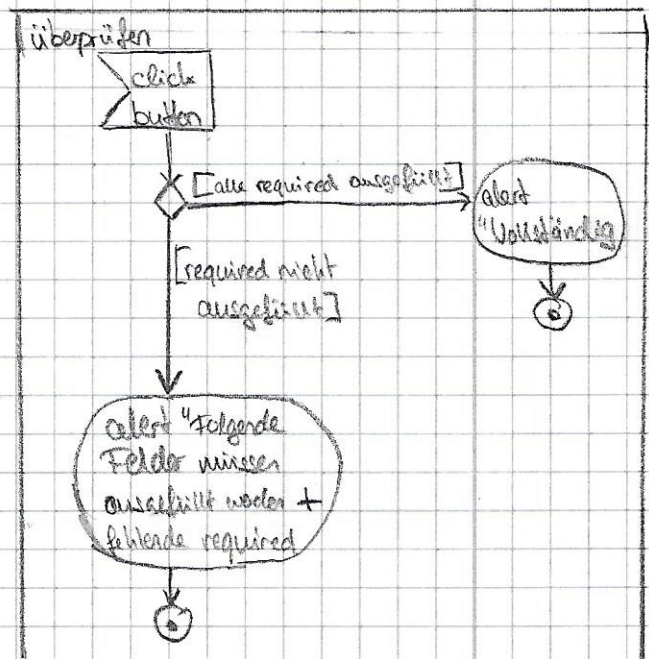 überprüfen
click
button
[alle required ausgefüllt]
alert
"Vollständig
[required nicht
ausgefüllt]
alert "Folgende
Felder müssen
ausgefüllt werden +
fehlende required